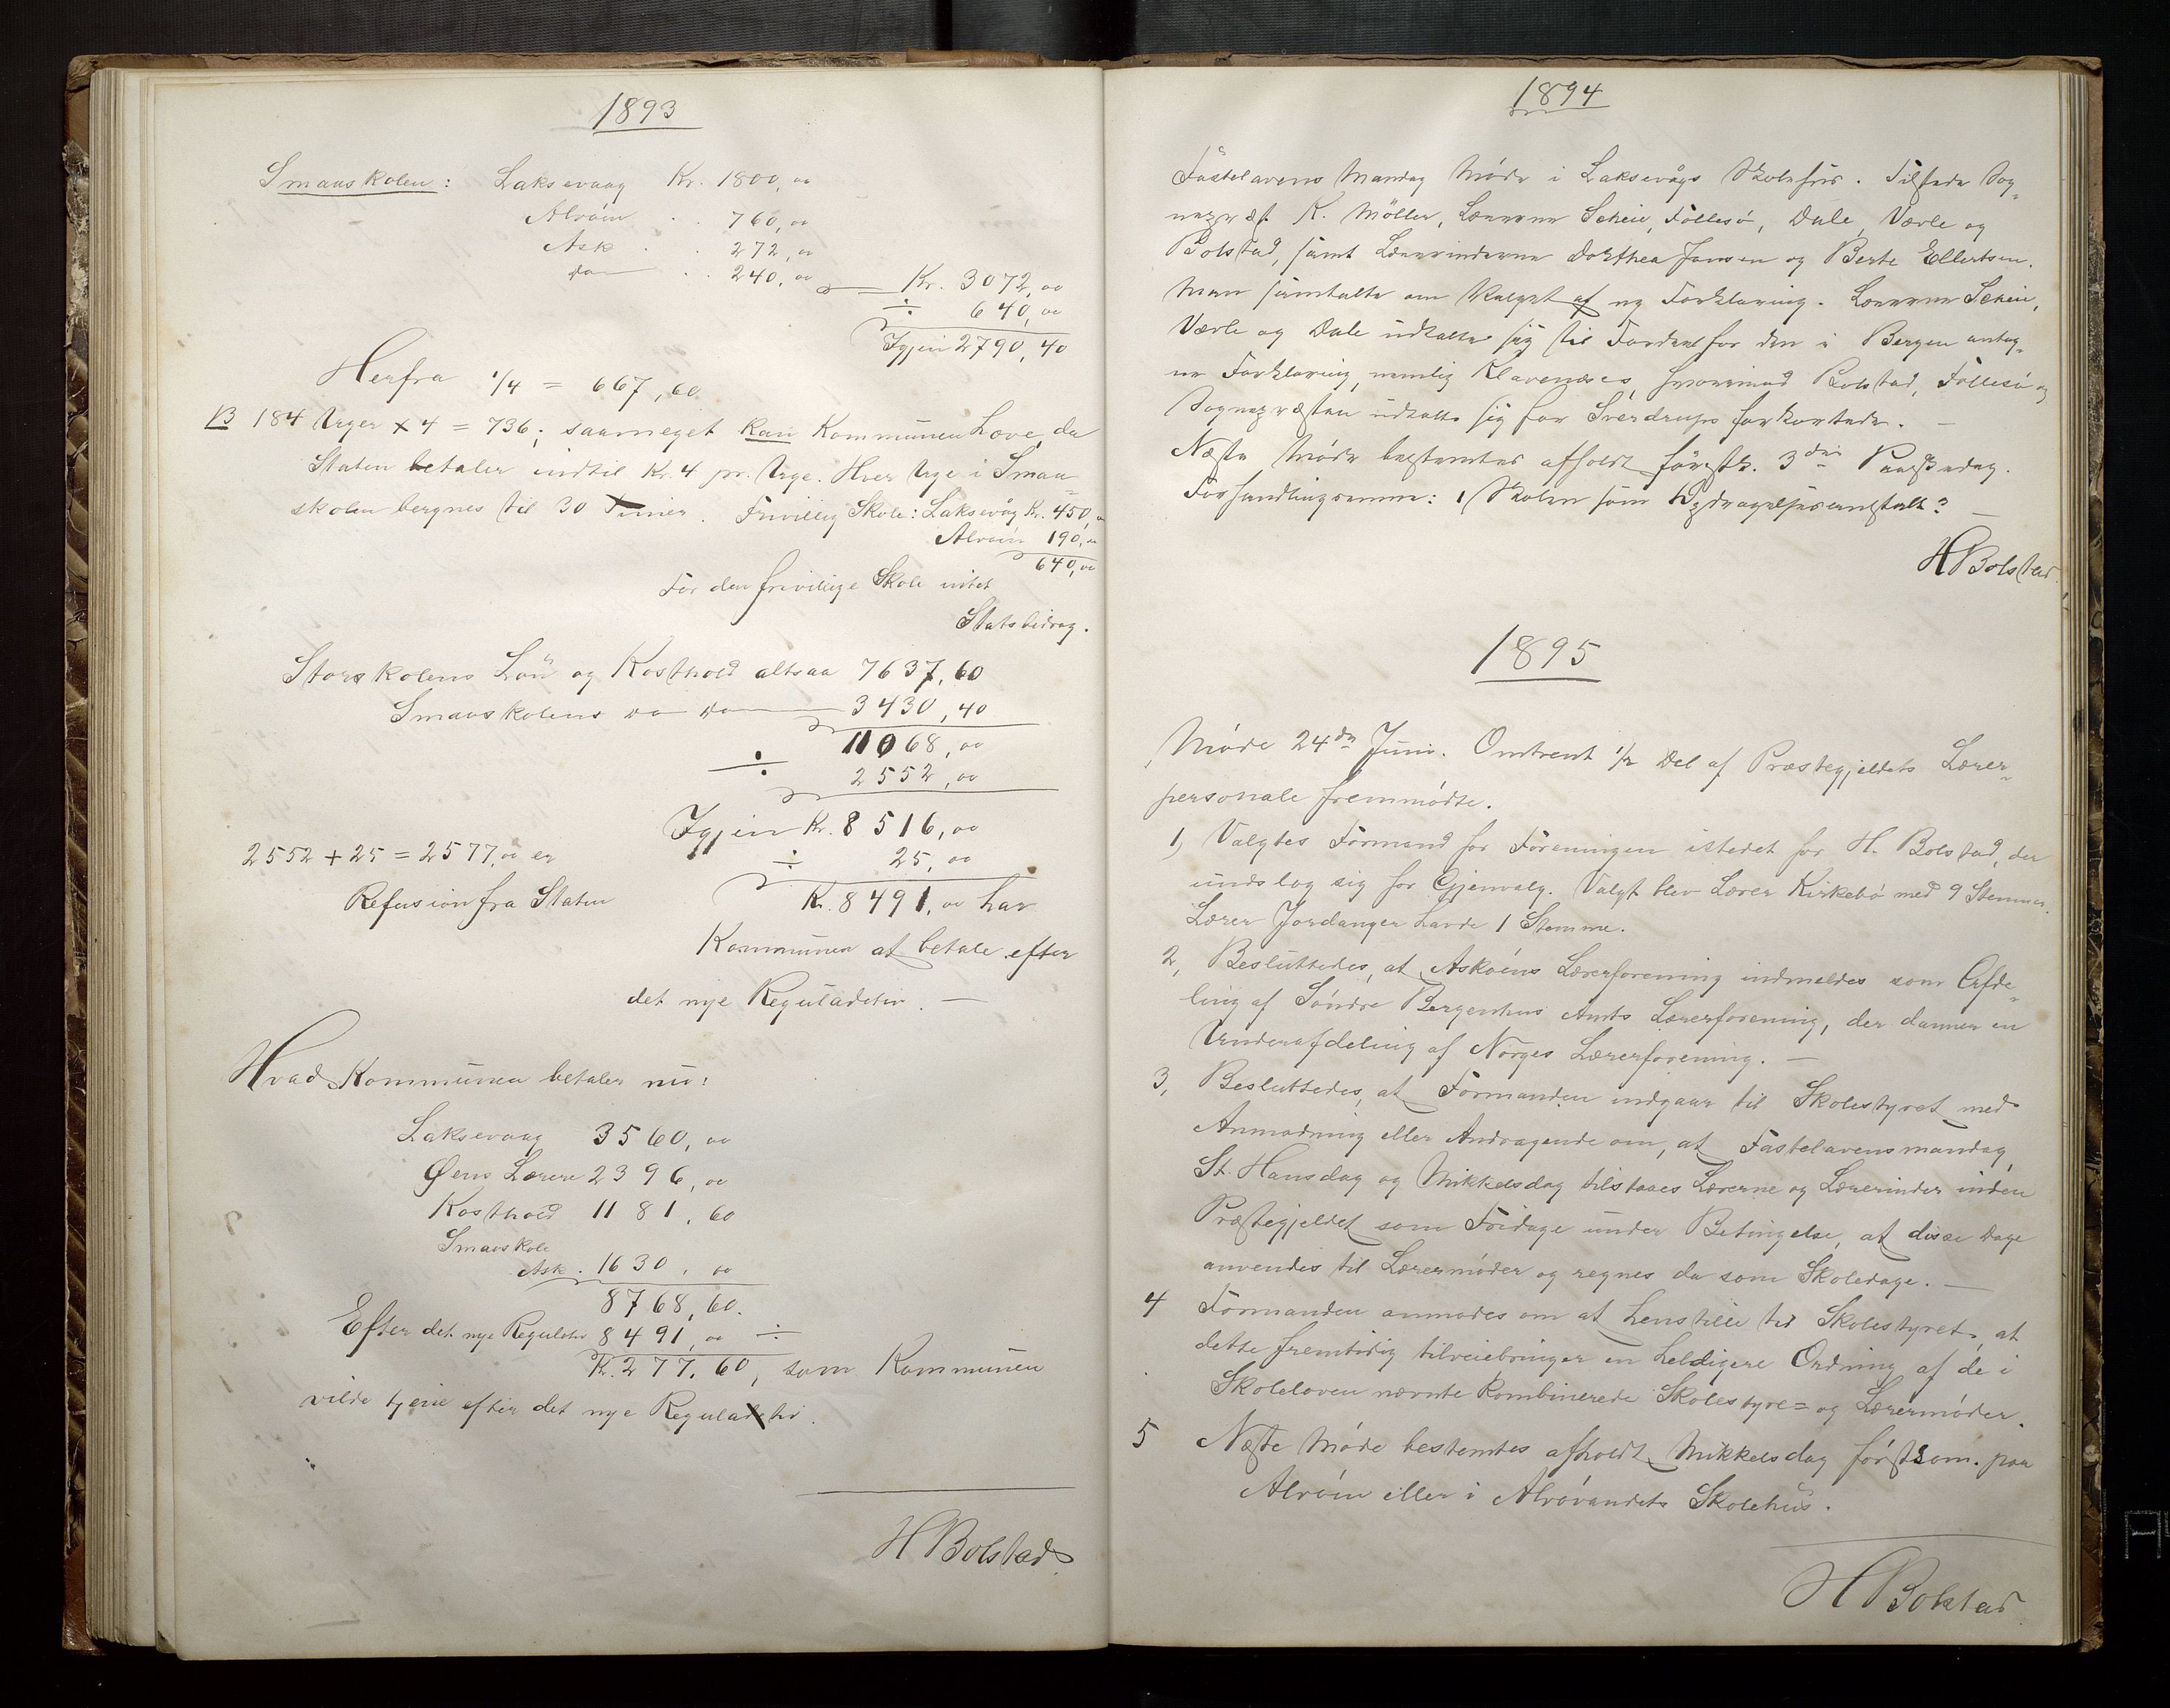 1893
Smaaskolen: Laksevaag Kr. 1800,00
Alvøen . . 760,00
Ask . . 272,00
do . . 240,00 Kr. 3072,00
÷ 640,00
Igjen 2790,40
Herfra 1/4 = 667,60
B 184 Uger x 4 = 736; saameget kan Kommunen Love, da
Staten betaler indtil Kr. 4 pr. Uge. Hver Uge i Smaa
skolen beregnes til 30 Timer. Frivillig Skole: Laksevåg Kr. 450,00
Alvøen 190,00
640,00
For den frivillige Skole intet
Statsbidrag.
Storskolens Løn og Kosthold altsaa 7637,60
Smaaskolens do do 3430,40
11068,00
÷ 2552,00
Igjen Kr. 8516,00
2552 + 25 = 2577,00 er ÷ 25,00
Refusion fra Staten Kr. 8491,00 har
Kommunen at betale efter
det nye Reguladetiv. —
Hvad Kommunen betaler nu:
Laksevaag 3560,00
Øens Lærere 2396,00
Kosthold 1181,60
Smaaskole
Ask . 1630,00
8768,60.
Efter det nye Regulativ 8491,00 ÷
Kr. 277,60, som Kommunen
vilde tjene efter det nye Regulativ.
H Bolstad
1894
Fastelavens Mandag Møde i Laksevågs Skolehus. Tilstede Sog-
nepræst K. Möller, Lærerne Scheie, Follesø, Dale, Værle og
Bolstad, samt Lærerinderne Dorthea Jansen og Berte Ellertsen.
Man samtalte om Valget af ny Forklaring. Lærerne Scheie,
Værle og Dale udtalte sig til Fordel for den i Bergen antag-
ne Forklaring, nemlig Klavenæs's, hvorimod Bolstad, Follesø og
Sognepræsten udtalte sig for Sverdrups forkortede. —
Næste Møde bestemtes afholdt førstk. 3die Paaskedag.
Forhandlingsemne: Skolen som Opdragelsesanstalt? —
H Bolstad.
1895
Møde 24de Juni. Omtrent 1/2 Del af Præstegjeldets Lærer-
personale fremmødte.
1, Valgtes Formand for Foreningen istedet for H. Bolstad, der
undslog sig for Gjenvalg. Valgt blev Lærer Kirkebø med 9 Stemmer.
Lærer Jordanger havde 1 Stemme.
2, Besluttedes, at Askøens Lærerforening indmeldes som Afde-
ling af Søndre Bergenhus Amts Lærerforening, der danner en
Underafdeling af Norges Lærerforening. —
3, Besluttedes, at Formanden indgaar til Skolestyret med
Anmodning eller Andragende om, at Fastelavensmandag,
St. Hansdag og Mikkelsdag tilstaaes Lærerne og Lærerinder inden
Præstegjeldet som Fridage under Betingelse, at disse Dage
anvendes til Lærermøder og regnes da som Skoledage. —
4 Formanden anmodes om at henstille til Skolestyret, at
dette fremtidig tilveiebringer en heldigere Ordning af de i
Skoleloven nævnte kombinerede Skolestyre= og Lærermøder.
5 Næste Møde bestemtes afholdt Mikkelsdag førstkom. paa
Alvøen eller i Alvøvandets Skolehus.
H Bolstad